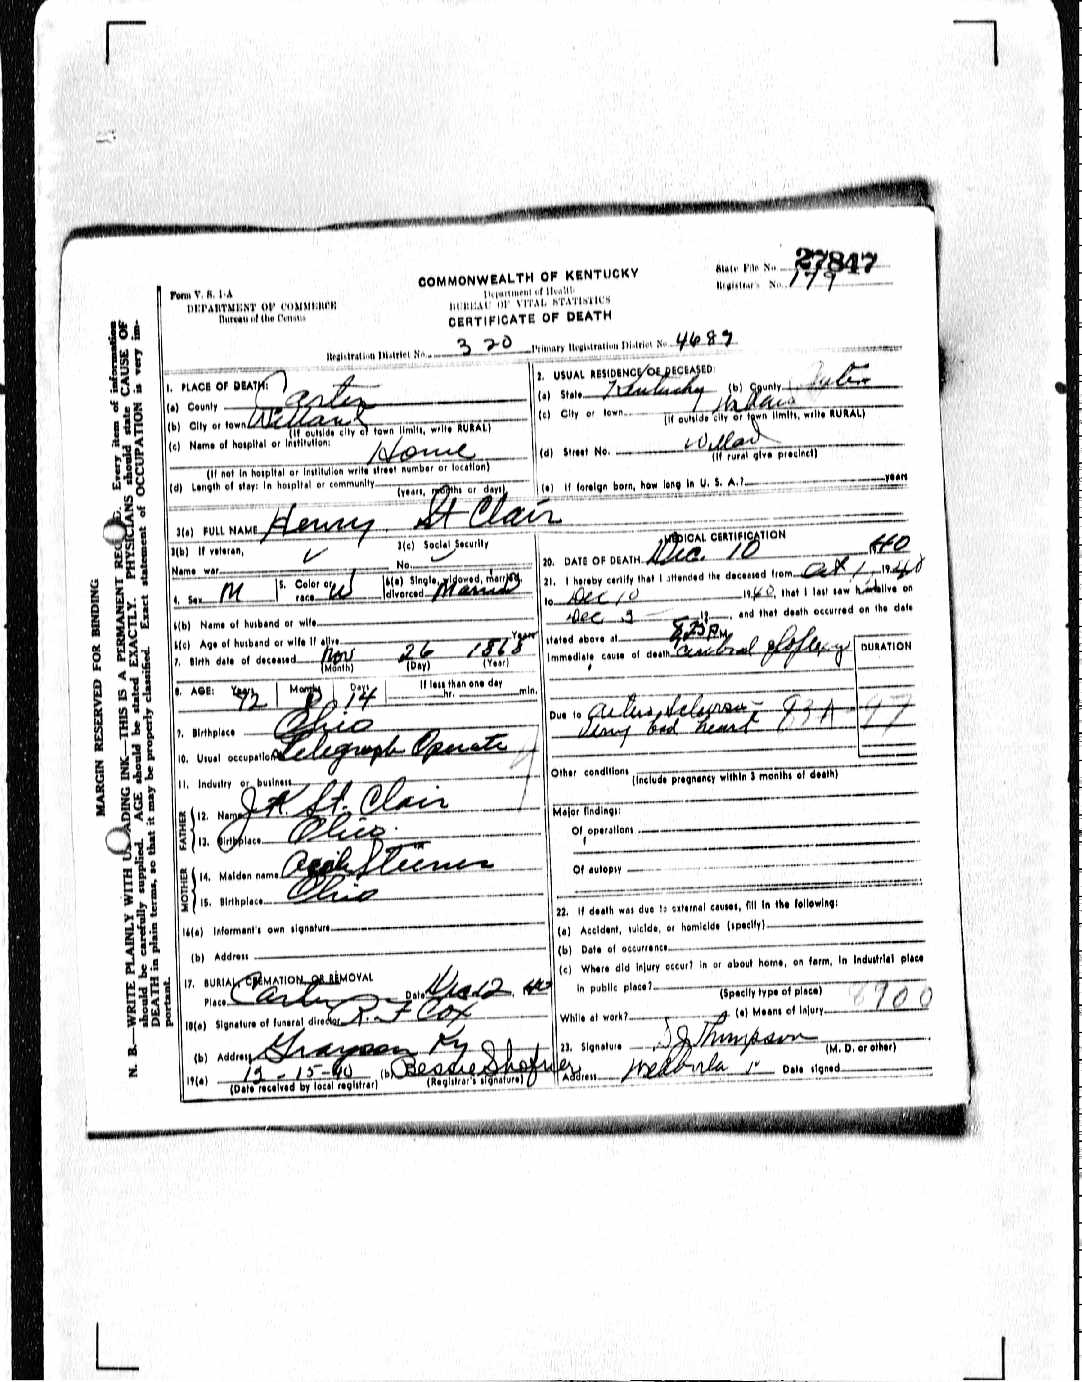 State File No. 27847
Registrar's No. 179
COMMONWEALTH OF KENTUCKY
Department of Health
BUREAU OF VITAL STATISTICS
CERTIFICATE OF DEATH
Form V. S. 1-A
DEPARTMENT OF COMMERCE
Bureau of the Census
Registration District No. 320 Primary Registration District No. 4689
MARGIN RESERVED FOR BINDING
N. B.—WRITE PLAINLY WITH UNFADING INK—THIS IS A PERMANENT RECORD. Every item of information
should be carefully supplied. AGE should be stated EXACTLY. PHYSICIANS should state CAUSE OF
DEATH in plain terms, so that it may be properly classified. Exact statement of OCCUPATION is very im-
portant.
1. PLACE OF DEATH:
(a) County Carter
(b) City or town Willard
(If outside city or town limits, write RURAL)
(c) Name of hospital or institution:
Home
(If not in hospital or institution write street number or location)
(d) Length of stay: In hospital or community
(years, months or days)
2. USUAL RESIDENCE OF DECEASED:
(a) State Kentucky (b) County Carter
(c) City or town
(If outside city or town limits, write RURAL)
(d) Street No. Willard
(If rural give precinct)
(e) If foreign born, how long in U. S. A.? years
3(a) FULL NAME Henry St Clair
3(b) If veteran,
Name war
3(c) Social Security
No.
4. Sex M 5. Color or race W 6(a) Single, widowed, married, divorced Married
6(b) Name of husband or wife
6(c) Age of husband or wife if alive Years
7. Birth date of deceased Nov 26 1868
(Month) (Day) (Year)
8. AGE: Years 72 Months 0 Days 14 If less than one day hr. min.
9. Birthplace Ohio
10. Usual occupation Telegraph Operator
11. Industry or business
FATHER
12. Name J A St. Clair
13. Birthplace Ohio.
MOTHER
14. Maiden name
15. Birthplace Ohio
16(a) Informant's own signature
(b) Address
17. BURIAL, CREMATION, OR REMOVAL
Place Carter Date Dec 12, 1940
18(a) Signature of funeral director R. F Cox
(b) Address Grayson Ky
19(a) 12-15-40 (b) Bessie Shofner
(Date received by local registrar) (Registrar's signature)
MEDICAL CERTIFICATION
20. DATE OF DEATH Dec. 10 40
21. I hereby certify that I attended the deceased from Oct 1, 1940
to Dec 10 1940, that I last saw h alive on
Dec 3 19, and that death occurred on the date
stated above at 8:25 P M
Immediate cause of death cerebral DURATION
Due to
very bad heart 83A - 97
Other conditions
(Include pregnancy within 3 months of death)
Major findings:
Of operations
Of autopsy
22. If death was due to external causes, fill in the following:
(a) Accident, suicide, or homicide (specify)
(b) Date of occurrence
(c) Where did injury occur? in or about home, on farm, in industrial place
in public place?
(Specify type of place)
8900
While at work? (e) Means of injury
23. Signature Thompson
(M. D. or other)
Address Date signed